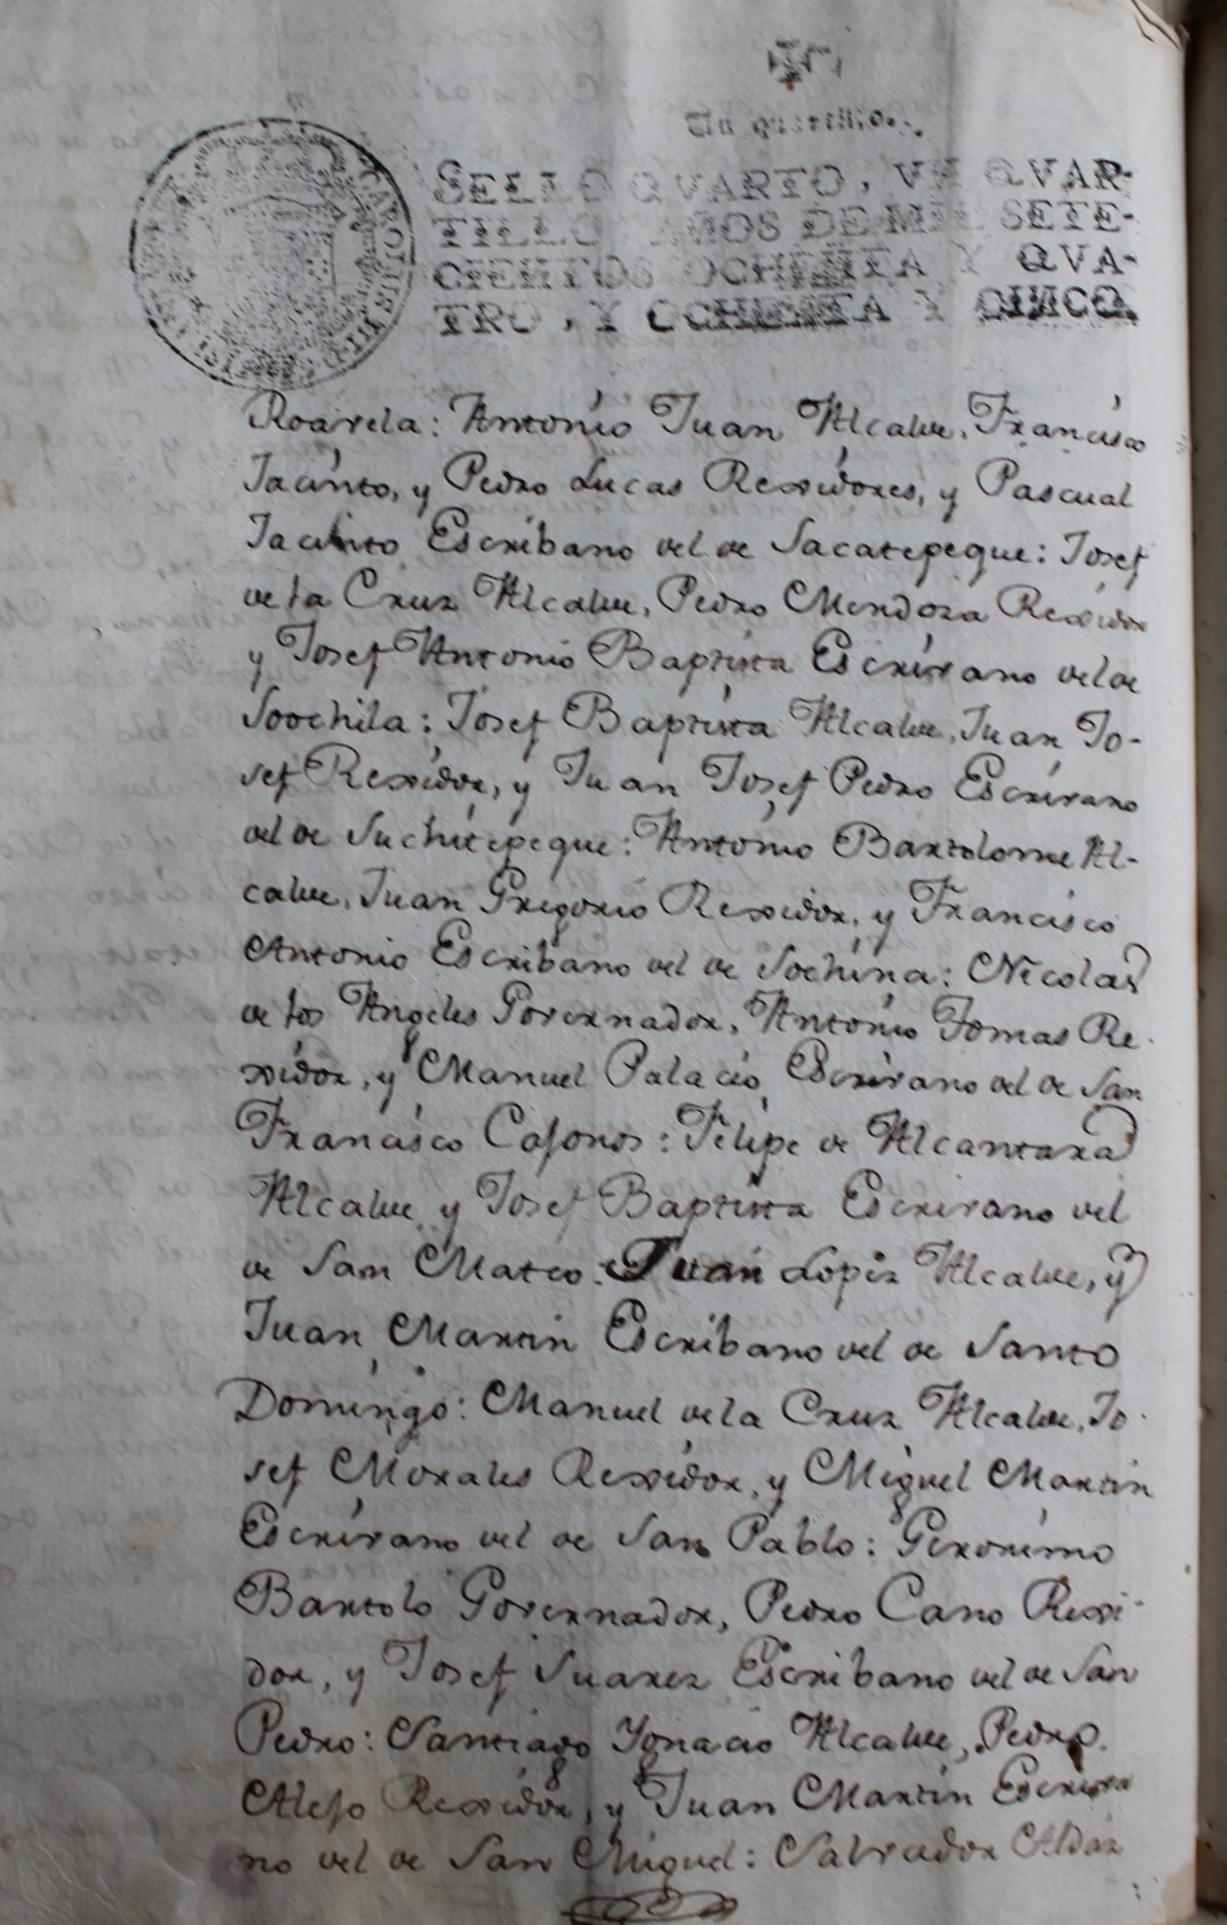 Un quartillo.
SELLO QVARTO, VN QVAR-
TILLO AÑOS DE MIL SETE-
CIENTOS OCHENTA Y QVA-
TRO, Y OCHENTA Y CINCO.
CAROLUS III D
Roavela: Antonio Juan Alcalde, Francisco
Jacinto, y Pedro Lucas Rexidores, y Pascual
Jacinto Escribano del de Sacatepeque: Josef
de la Cruz Alcalde, Pedro Mendoza Rexidor
y Josef Antonio Baptista Escrivano del de
Soochila: Josef Baptista Alcalde, Juan Jo-
sef Rexidor, y Juan Josef Pedro Escrivano
del de Suchitepeque: Antonio Bartolome Al-
calde, Juan Gregorio Rexidor, y Francisco
Antonio Escribano del de Sochina: Nicolas
de los Angeles Governador, Antonio Tomas Re-
xidor, y Manuel Palacio Escrivano del de San
Francisco Casonos: Felipe de Alcantara
Alcalde y Josef Baptista Escrivano del
de San Mateo: Juan Lopez Alcalde, y
Juan Martin Escribano del de Santo
Domingo: Manuel de la Cruz Alcalde, Jo-
sef Morales Rexidor, y Miguel Martin
Escrivano del de San Pablo: Geronimo
Bartolo Governador, Pedro Cano Rexi-
dor, y Josef Suarez Escribano del de San
Pedro: Santiago Ygnacio Alcalde, Pedro
Alejo Rexidor, y Juan Martin Escriva
no del de San Miguel: Salvador Aldaz